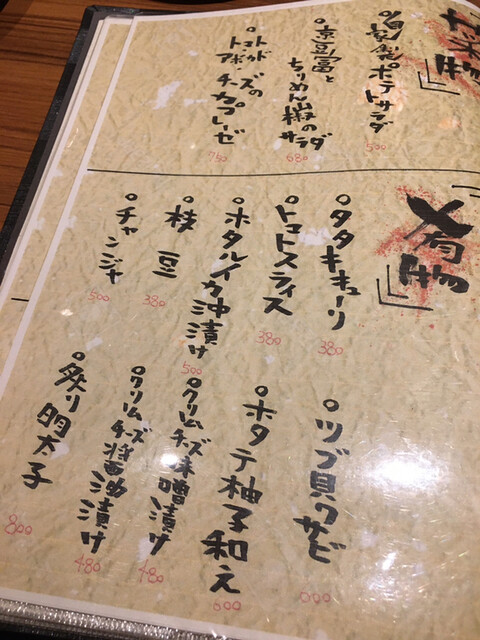 菜物
自家製ポテトサラダ
500
京豆富と
ちりめん山椒のサラダ
680
トマト
アボカド
チーズの
カプレーゼ
750
肴物
タタキキューリ
380
トマトスライス
380
ホタルイカ沖漬け
500
枝豆
380
チャンジャ
500
ツブ貝ワサビ
ホタテ柚子和え
クリーム
チーズ味噌漬け
480
クリーム
チーズ醤油漬け
480
炙り明太子
800